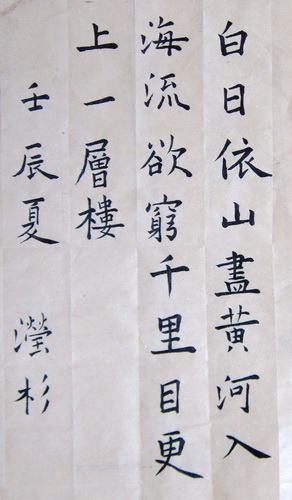 白日依山盡黃河入
海流欲窮千里目更
上一層樓
壬辰夏 瀅杉